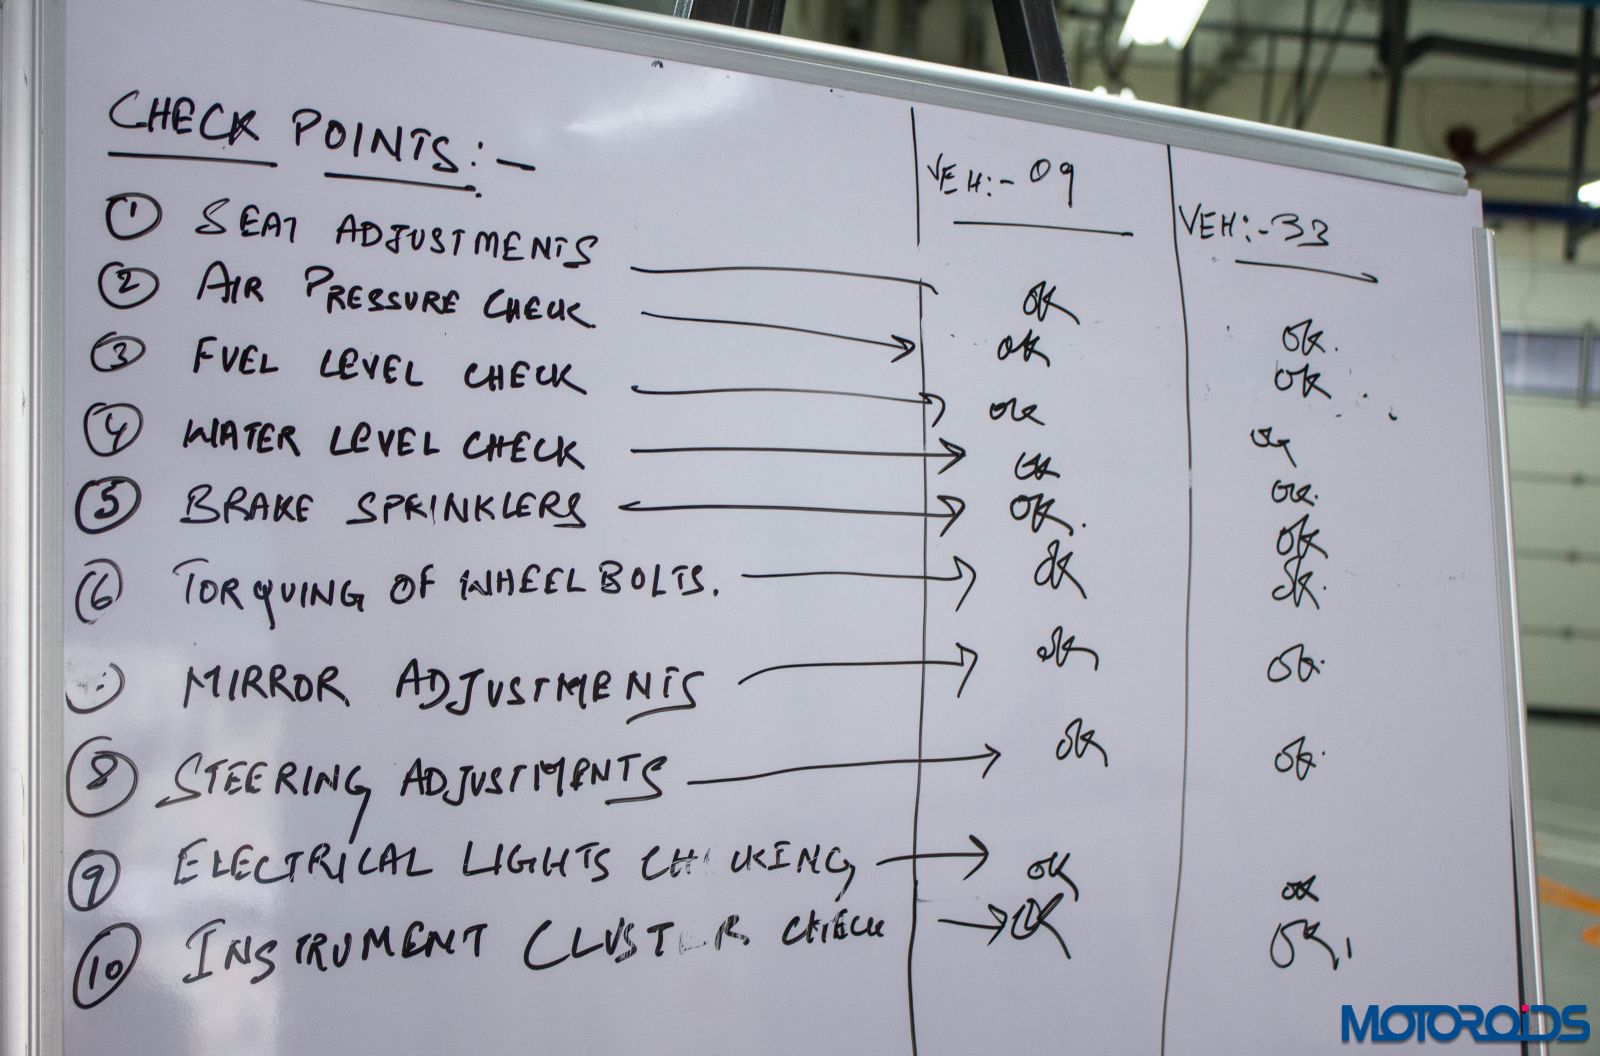 CHECK POINTS:-
VEH:- 09
VEH:- 33
① SEAT ADJUSTMENTS OK OK.
② AIR PRESSURE CHECK OK OK
③ FUEL LEVEL CHECK OK OK
④ WATER LEVEL CHECK OK OK.
⑤ BRAKE SPRINKLERS OK. OK
⑥ TORQUING OF WHEEL BOLTS. OK OK.
MIRROR ADJUSTMENTS OK OK.
⑧ STEERING ADJUSTMENTS OK OK.
⑨ ELECTRICAL LIGHTS OK OK
⑩ INSTRUMENT CLUSTER CHECK OK OK.
MOTOROIDS